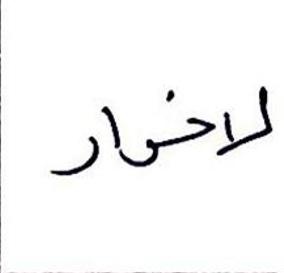 لاخوار